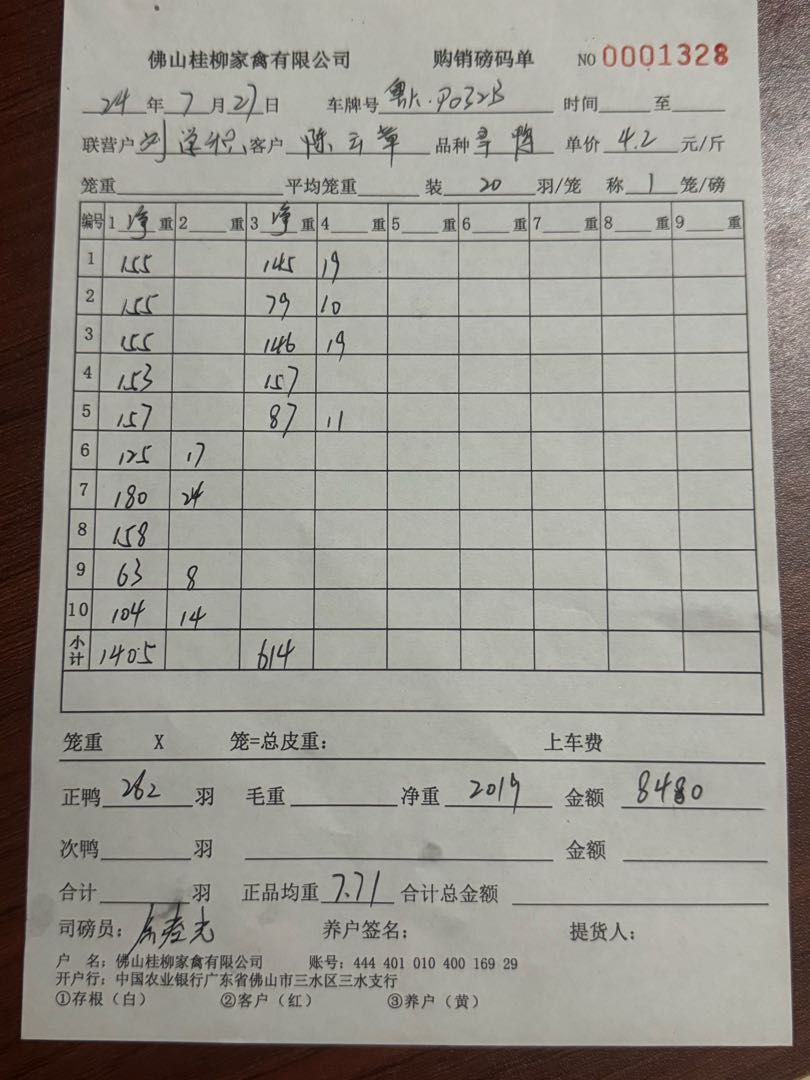 佛山桂柳家禽有限公司 购销磅码单 NO 0001328
24 年 7 月 27 日 车牌号 粤A·P032B 时间 至
联营户 刘 客户 陈云章 品种 旱鸭 单价 4.2 元/斤
笼重 平均笼重 装 20 羽/笼 称 1 笼/磅
编号 1 净 重 2 重 3 净 重 4 重 5 重 6 重 7 重 8 重 9 重
1 155 145 19
2 155 79 10
3 155 146 19
4 153 157
5 157 87 11
6 125 17
7 180 24
8 158
9 63 8
10 104 14
小计 1405 614
笼重 X 笼=总皮重： 上车费
正鸭 262 羽 毛重 净重 2019 金额 8480
次鸭 羽 金额
合计 羽 正品均重 7.71 合计总金额
司磅员： 养户签名： 提货人：
户 名：佛山桂柳家禽有限公司 账号：444 401 010 400 169 29
开户行：中国农业银行广东省佛山市三水区三水支行
①存根（白） ②客户（红） ③养户（黄）